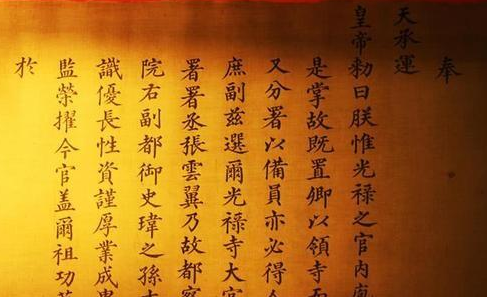 奉
天承運
皇帝勅曰朕惟光禄之官内
是掌故既置卿以領寺
又分署以備員亦必得
庶副兹選爾光禄寺大官
署署丞張雲翼乃故都察
院右副都御史瑋之孫
識優長性資謹厚業成
監榮擢今官盖爾祖功
於